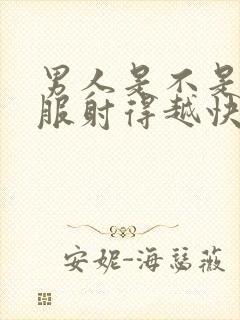 男人是不是
服射得越快
安妮-海瑟薇